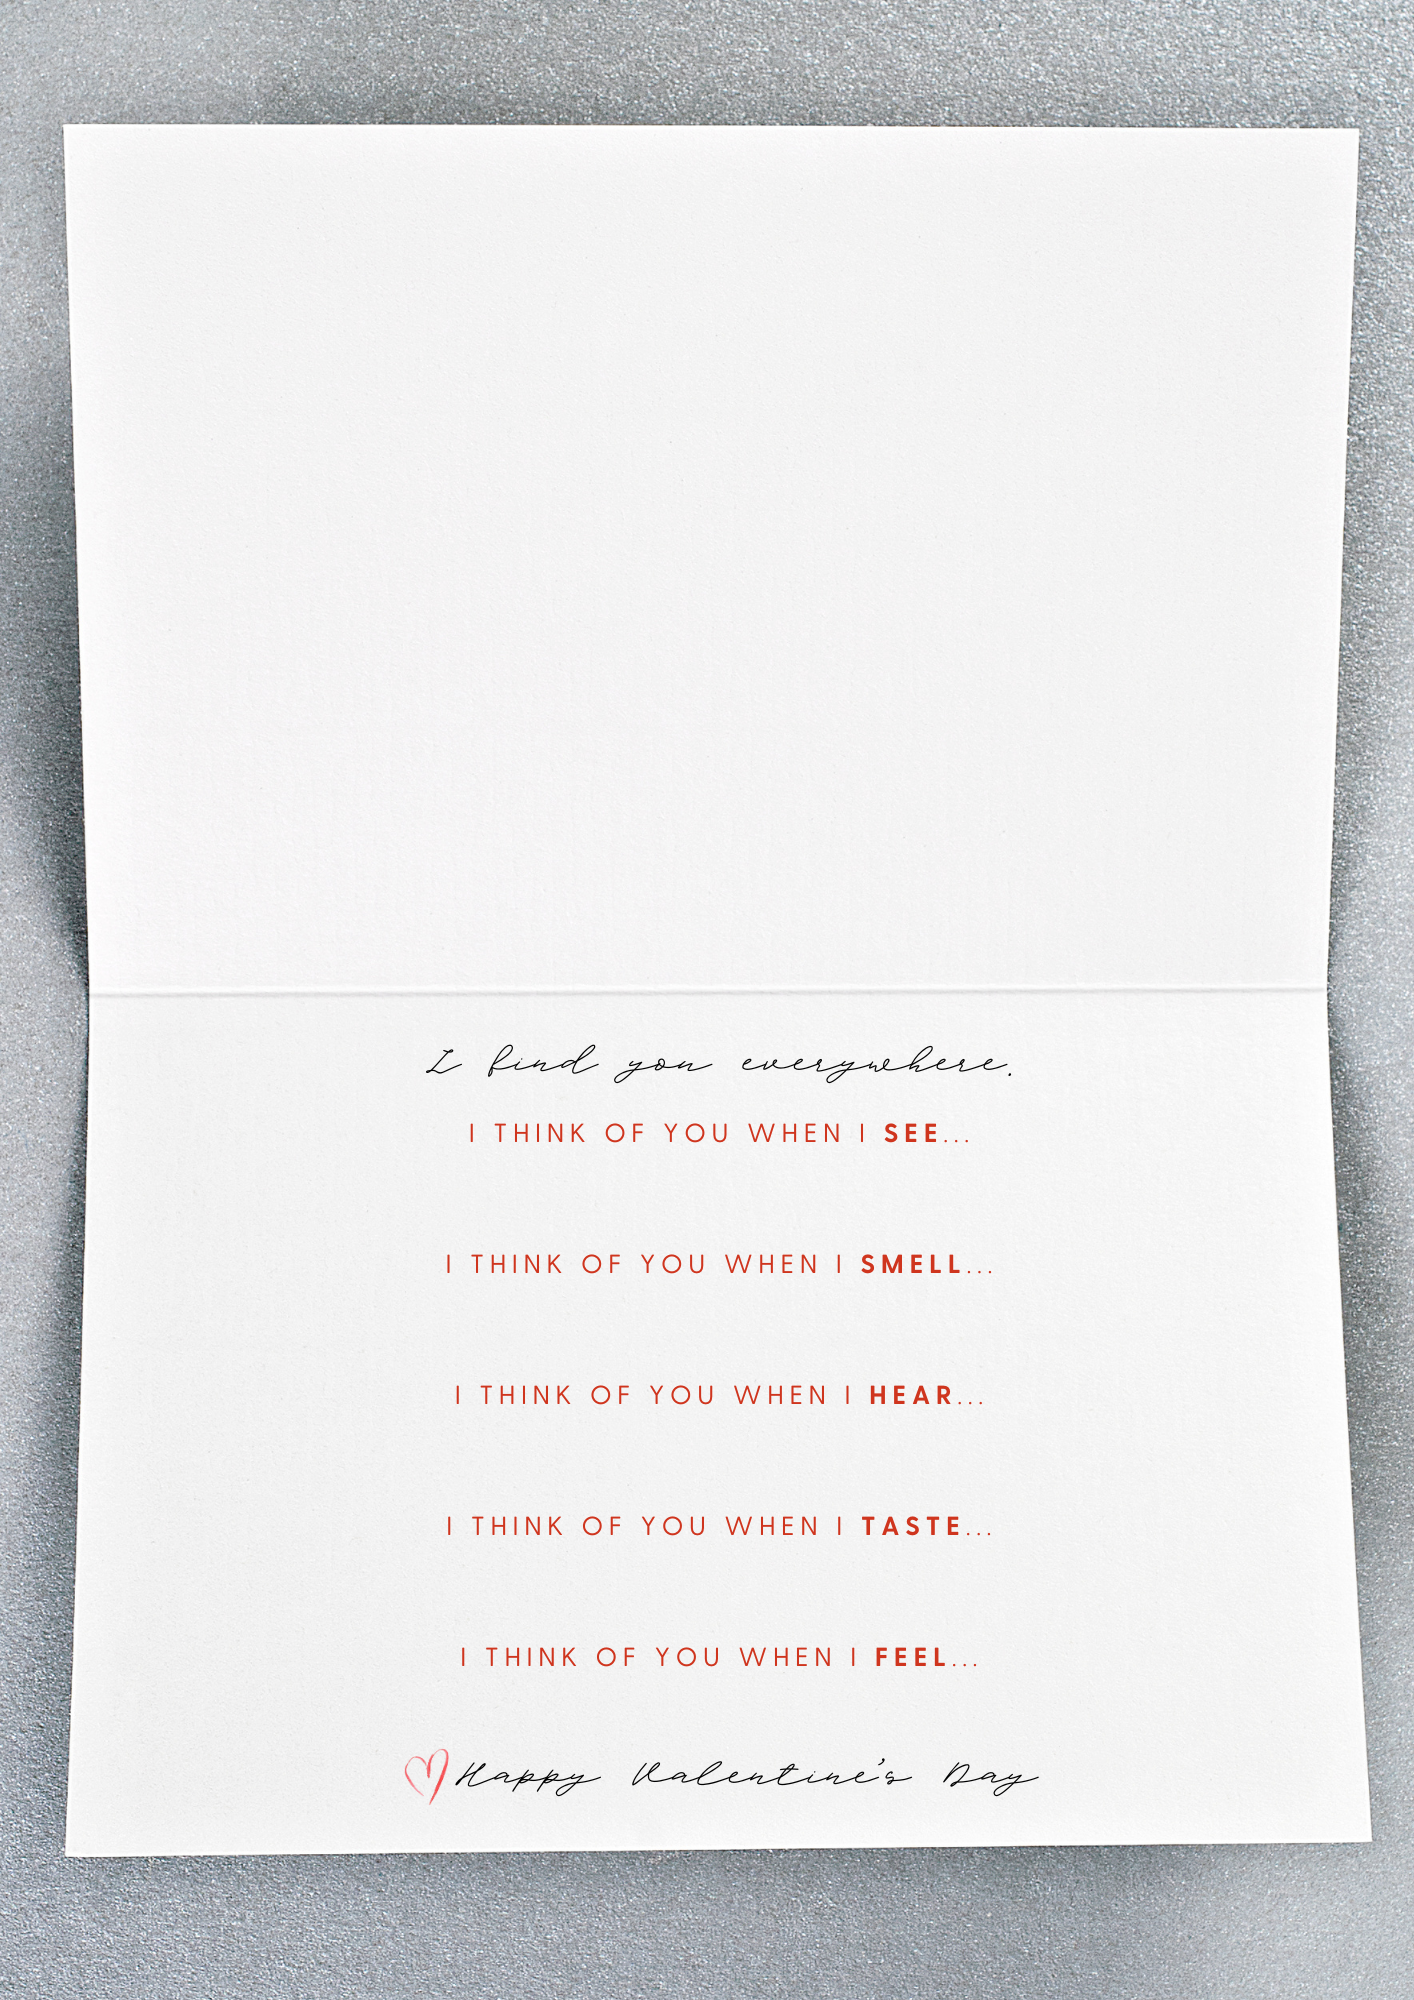 I find you everywhere.
I THINK OF YOU WHEN I SEE...
I THINK OF YOU WHEN I SMELL...
I THINK OF YOU WHEN I HEAR...
I THINK OF YOU WHEN I TASTE...
I THINK OF YOU WHEN I FEEL...
Happy Valentine's Day